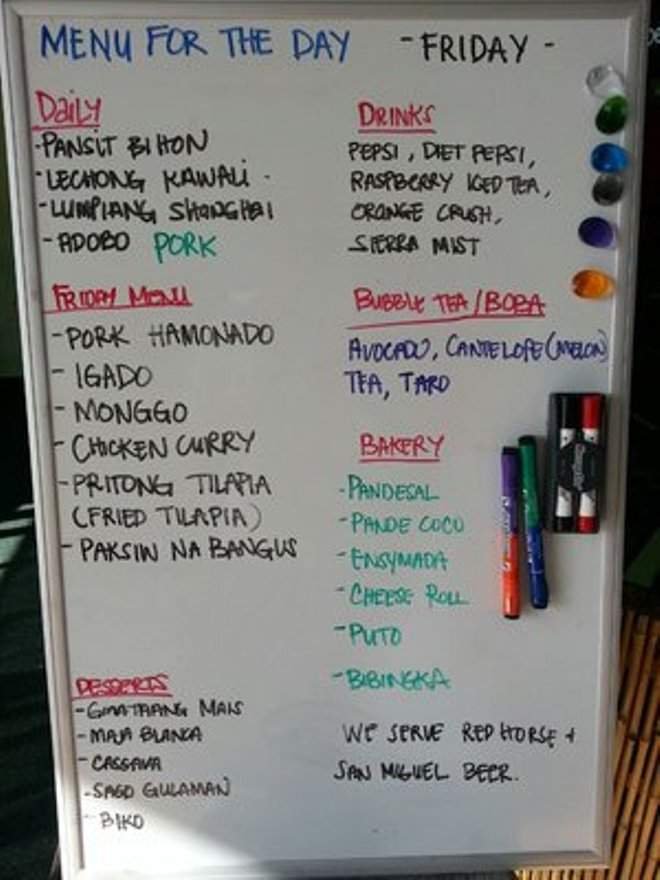 MENU FOR THE DAY - FRIDAY -
Daily
- PANSIT BIHON
- LECHONG KAWALI -
- LUMPIANG SHANGHAI
- ADOBO PORK
FRIDAY MENU
- PORK HAMONADO
- IGADO
- MONGGO
- CHICKEN CURRY
- PRITONG TILAPIA
(FRIED TILAPIA)
- PAKSIW NA BANGUS
DESSERTS
- GINATAANG MAIS
- MAJA BLANCA
- CASSAVA
- SAGO GULAMAN
- BIKO
DRINKS
PEPSI, DIET PEPSI,
RASPBERRY ICED TEA,
ORANGE CRUSH,
SIERRA MIST
BUBBLE TEA / BOBA
AVOCADO, CANTELOPE (MELON)
TEA, TARO
BAKERY
- PANDESAL
- PANDE COCO
- ENSYMADA
- CHEESE ROLL
- PUTO
- BIBINGKA
WE SERVE RED HORSE +
SAN MIGUEL BEER.